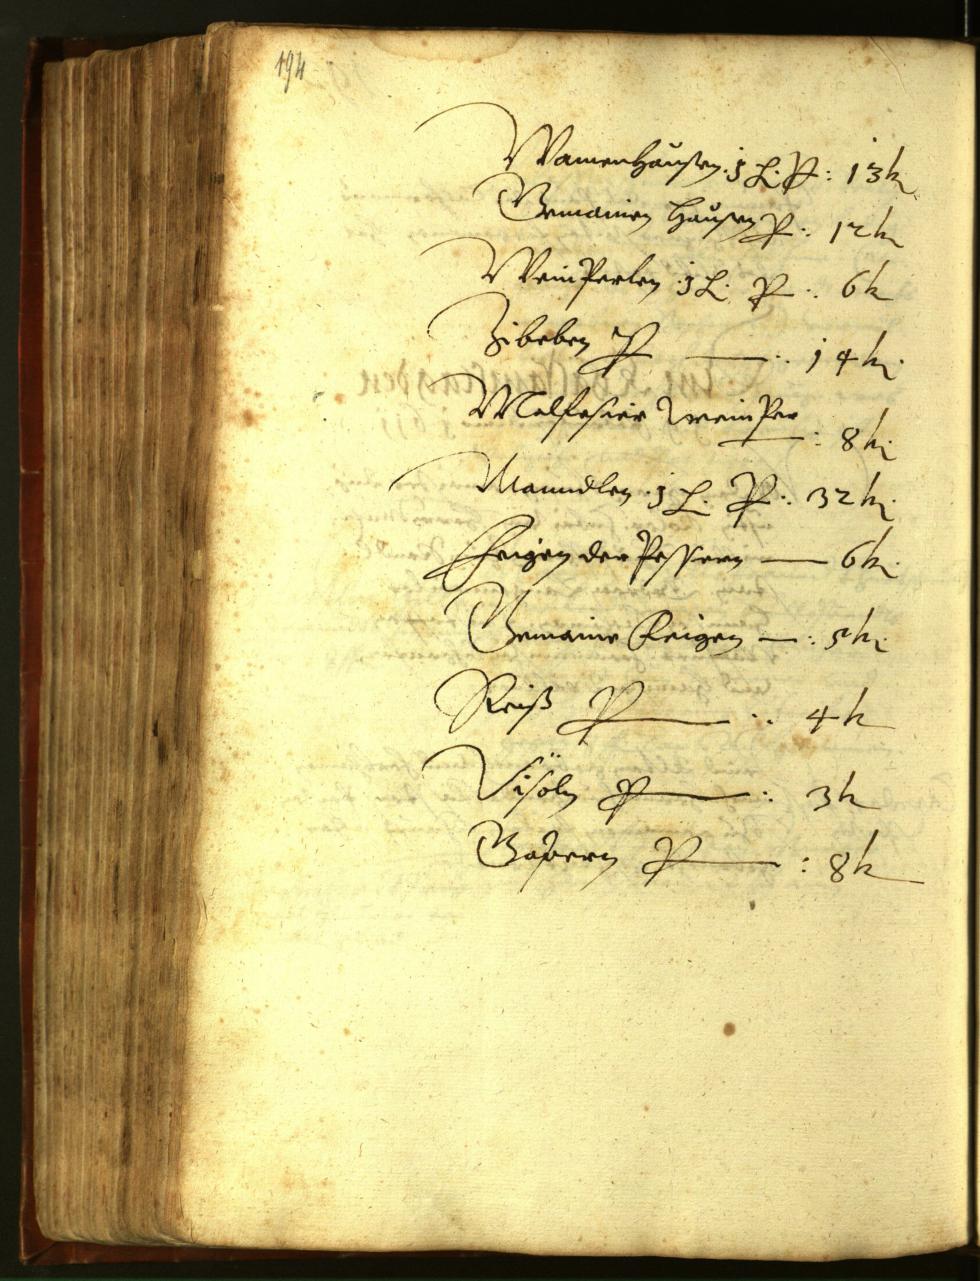 194
Wamenhausen j L. P: 13 k
Gemainen hausen P: 12 k
Weinperlen j L. P: 6 k
Zibeben P — : 14 k
Malfasier weinper
— : 8 k
Manndlen j L. P: 32 k
Feigen der Pessern — 6 k
Gemaine Feigen — : 5 k
Reiß P — : 4 k
Visöln P — : 3 k
P — : 8 k